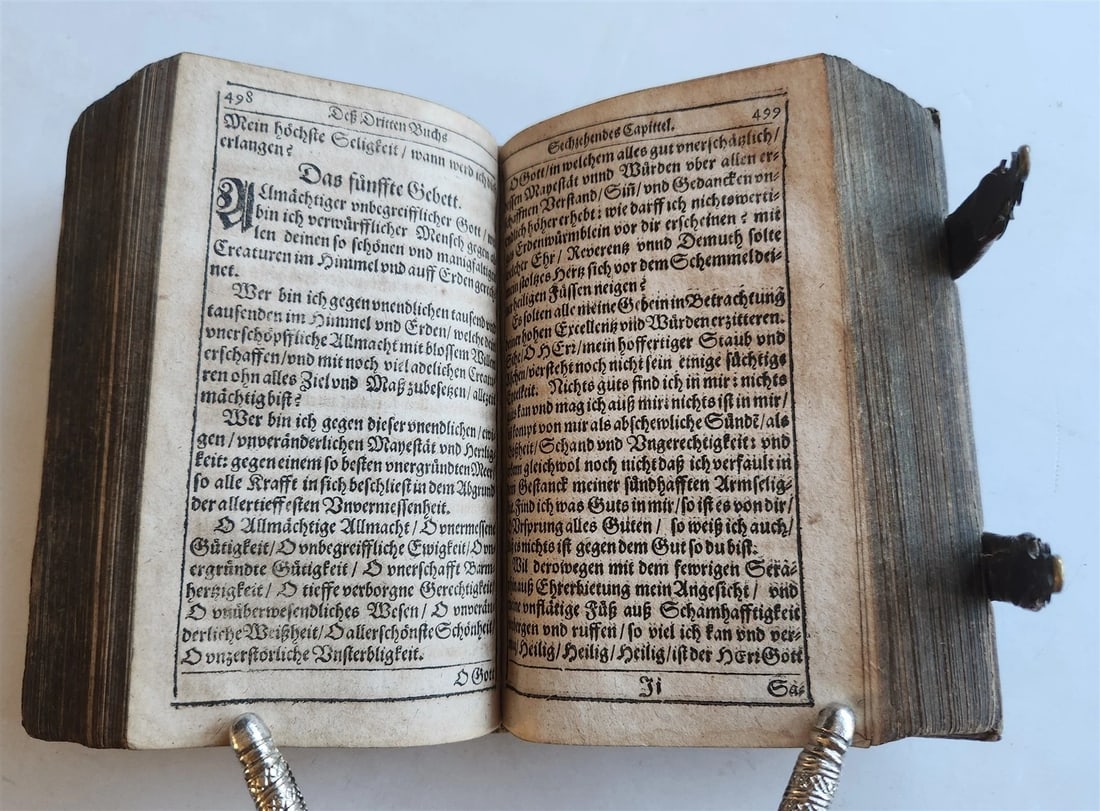 498
Deß Dritten Buchs
Mein höchste Seligkeit / wann werd ich
erlangen?
Das fünffte Gebett.
Allmächtiger vnbegreifflicher Gott /
bin ich verwürfflicher Mensch gegen
len deinen so schönen vnd manigfaltigen
Creaturen im Himmel vnd auff Erden gerech
net.
Wer bin ich gegen vnendlichen tausend vnd
tausenden im Himmel vnd Erden / welche dein
vnerschöpffliche Allmacht mit blossem Willen
erschaffen / vnd mit noch viel adelichen Creatu
ren ohn alles Ziel vnd Maß zubesetzen / allezeit
mächtig bist?
Wer bin ich gegen dieser vnendlichen / ewi
gen / vnveränderlichen Mayestät vnd Herrlig
keit: gegen einem so besten vnergründten Meer
so alle Krafft in sich beschliest in dem Abgrund
der allertieffesten Vnvermessenheit.
O Allmächtige Allmacht / O vnermessene
Gütigkeit / O vnbegreiffliche Ewigkeit / O vn
ergründte Gütigkeit / O vnerschafft Barm
hertzigkeit / O tieffe verborgne Gerechtigkeit
O vnüberwesendliches Wesen / O vnverän
derliche Weißheit / O allerschönste Schönheit /
O vnzerstörliche Vnsterbligkeit.
O Gott
499
Sechzehendes Capittel.
O Gott / in welchem alles gut vnerschätzlich /
dessen Mayestät vnnd Würden vber allen er-
schaffnen Verstand / Siñ / vnd Gedancken vn-
endlich höher erhebt: wie darff ich nichtswerti-
ges Erdenwürmblein vor dir erscheinen? mit
welcher Ehr / Reverentz vnnd Demuth solte
mein stoltzes Hertz sich vor dem Schemmel dei-
ner heiligen Füssen neigen?
Es solten alle meine Gebein in Betrachtung
deiner hohen Excellentz vnd Würden erzitteren.
Sihe / O HErr / mein hoffertiger Staub vnd
Aschen / versteht noch nicht sein einige süchtige
Eytelkeit. Nichts guts find ich in mir: nichts
guts kan vnd mag ich auß mir: nichts ist in mir /
es kompt von mir als abschewliche Sündẽ / als
Boßheit / Schand vnd Vngerechtigkeit: vnd
gleichwol noch nicht daß ich verfault in
dem Gestanck meiner sündhafften Armselig-
keit. Find ich was Guts in mir / so ist es von dir /
O Vrsprung alles Guten / so weiß ich auch /
daß es nichts ist gegen dem Gut so du bist.
Wil derowegen mit dem fewrigen Sera-
phin auß Ehrerbietung mein Angesicht / vnd
meine vnflätige Füß auß Schamhafftigkeit
verbergen vnd ruffen / so viel ich kan vnd ver-
mag / Heilig / Heilig / Heilig / ist der HErr Gott
Ji
Sa-